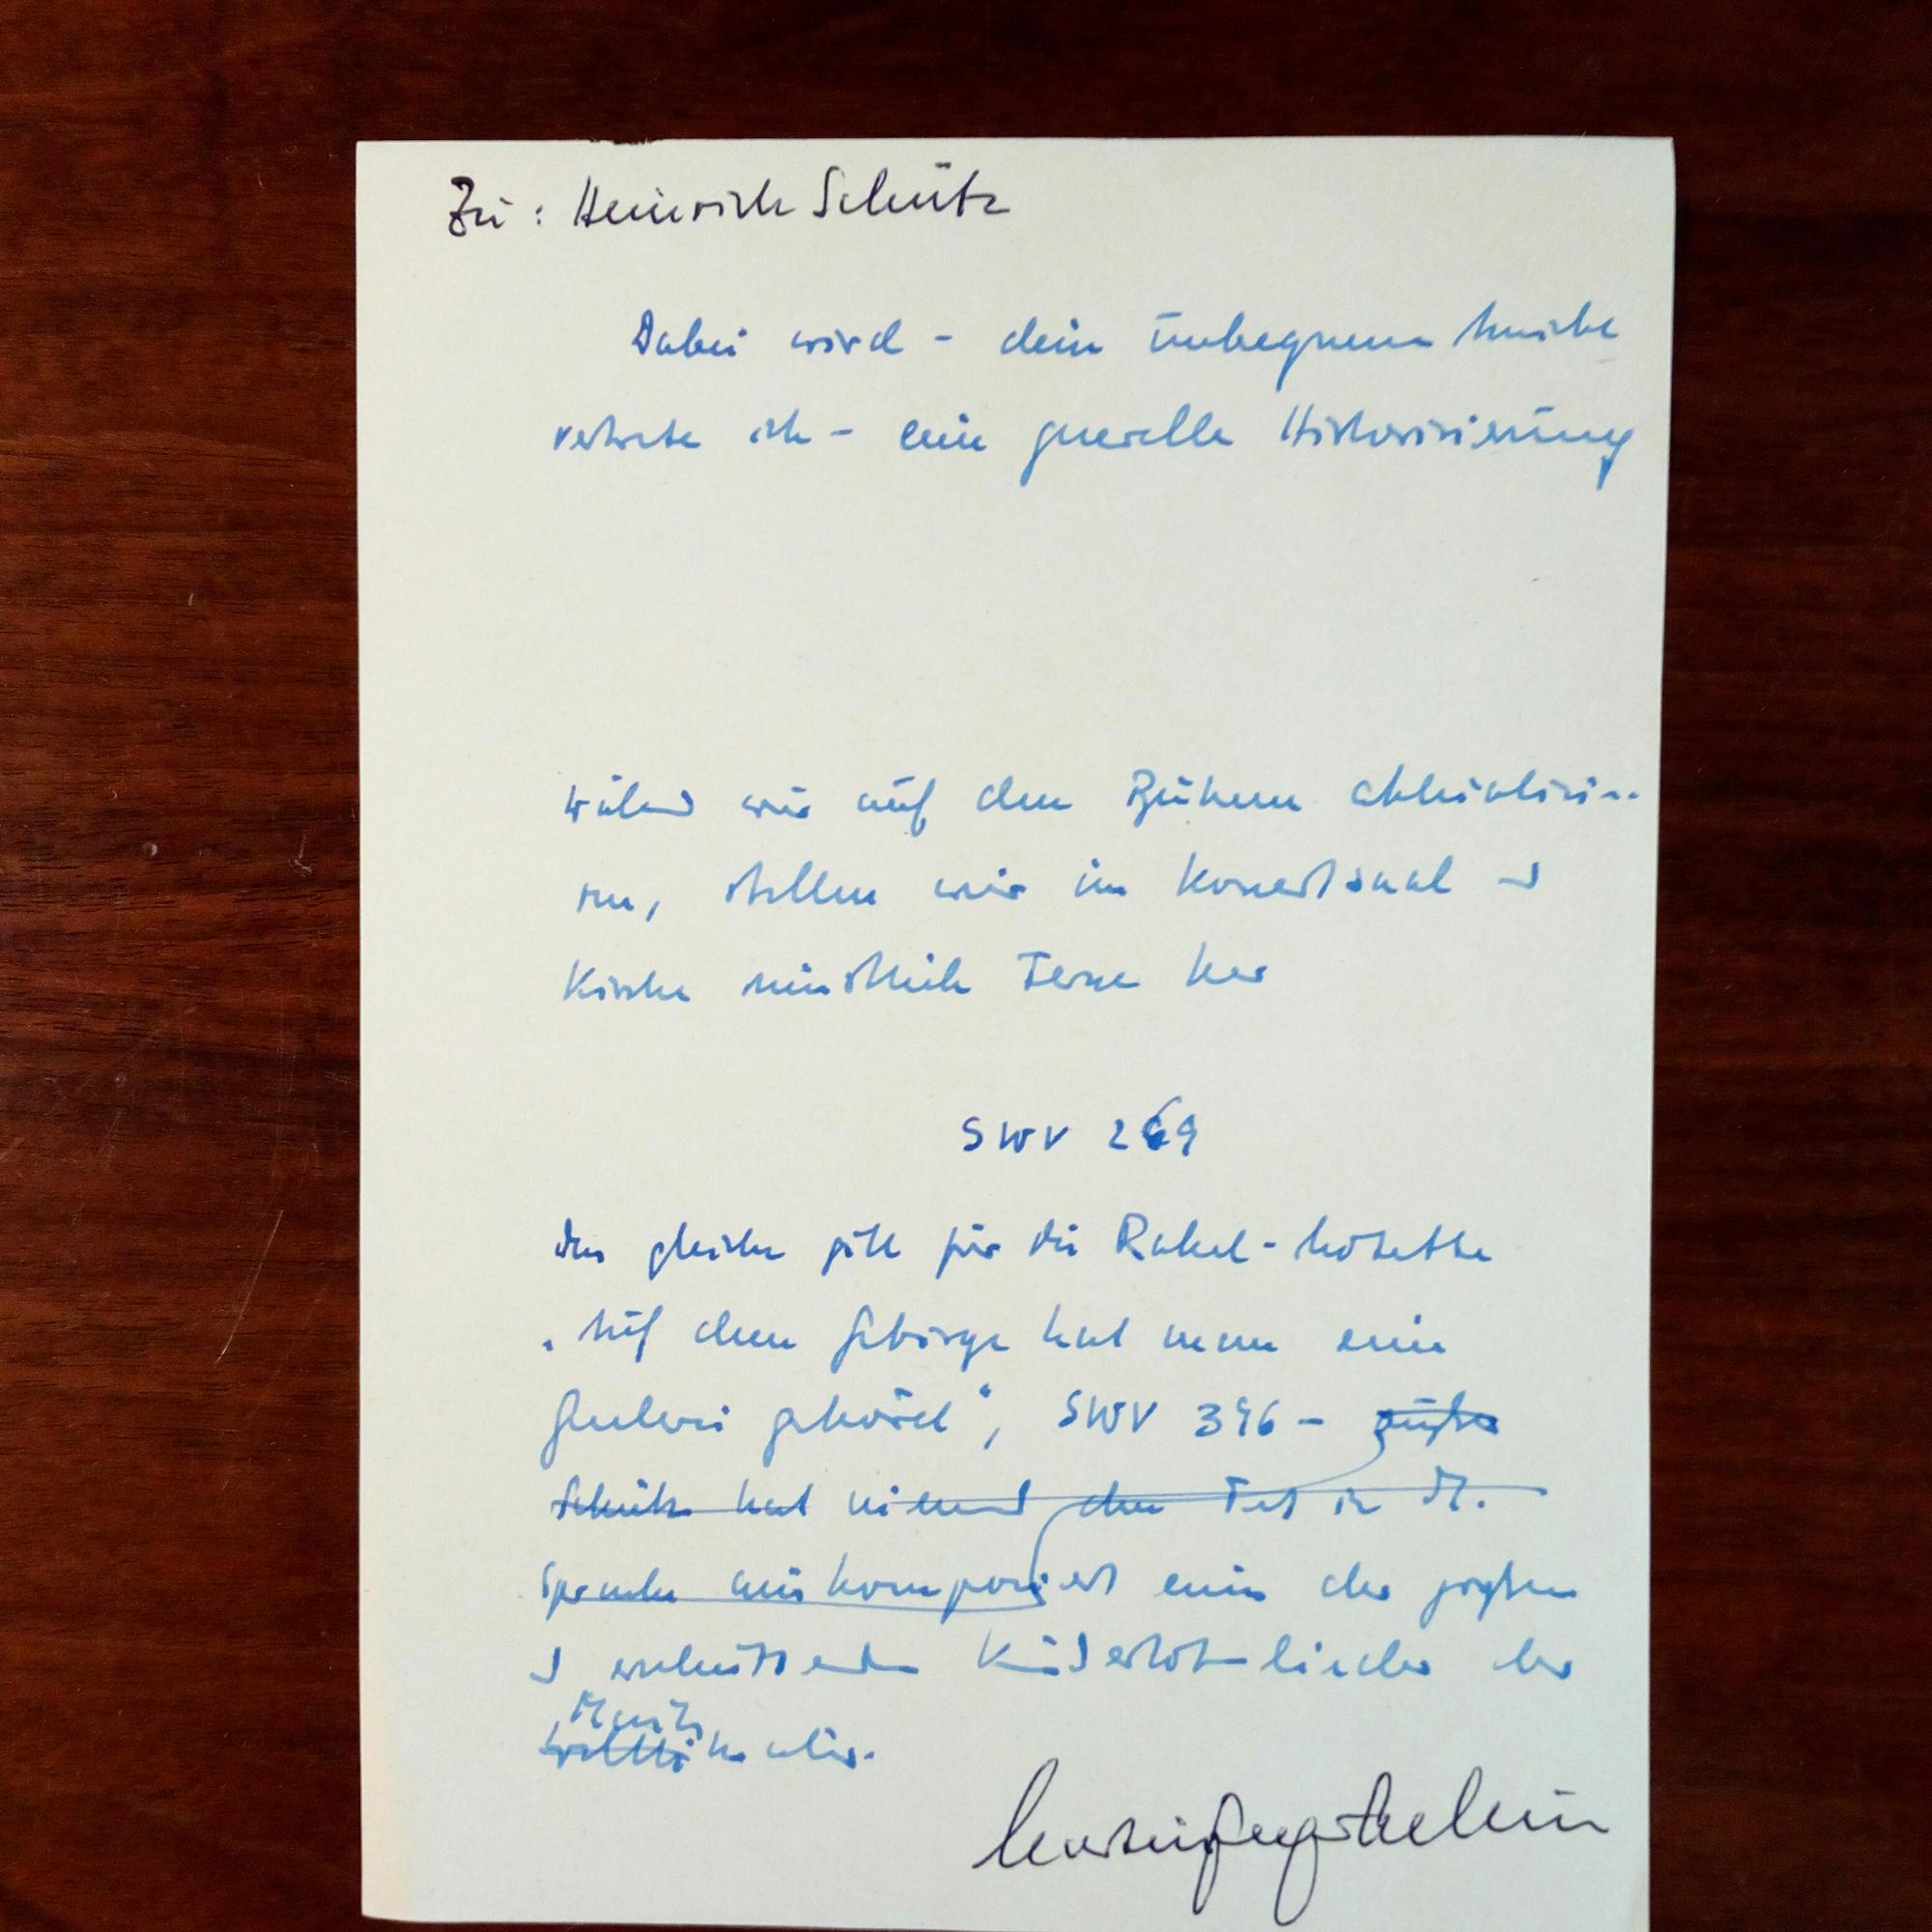 Zu: Heinrich Schütz
Dabei wird - diese unbequeme Ansicht
vertrete ich - eine generelle Historisierung
während wir auf den Bühnen aktualisie-
ren, stellen wir im Konzertsaal u
Kirche künstlich Ferne her
SWV 269
das gleiche gilt für die Rahel-Motette
"Auf dem Gebirge hat man ein
Geschrei gehöret", SWV 396 - außer
Schütz hat niemand den Text in dt.
Sprache auskomponiert eins der größten
u erschütterndsten Kindertotenlieder der
Musik